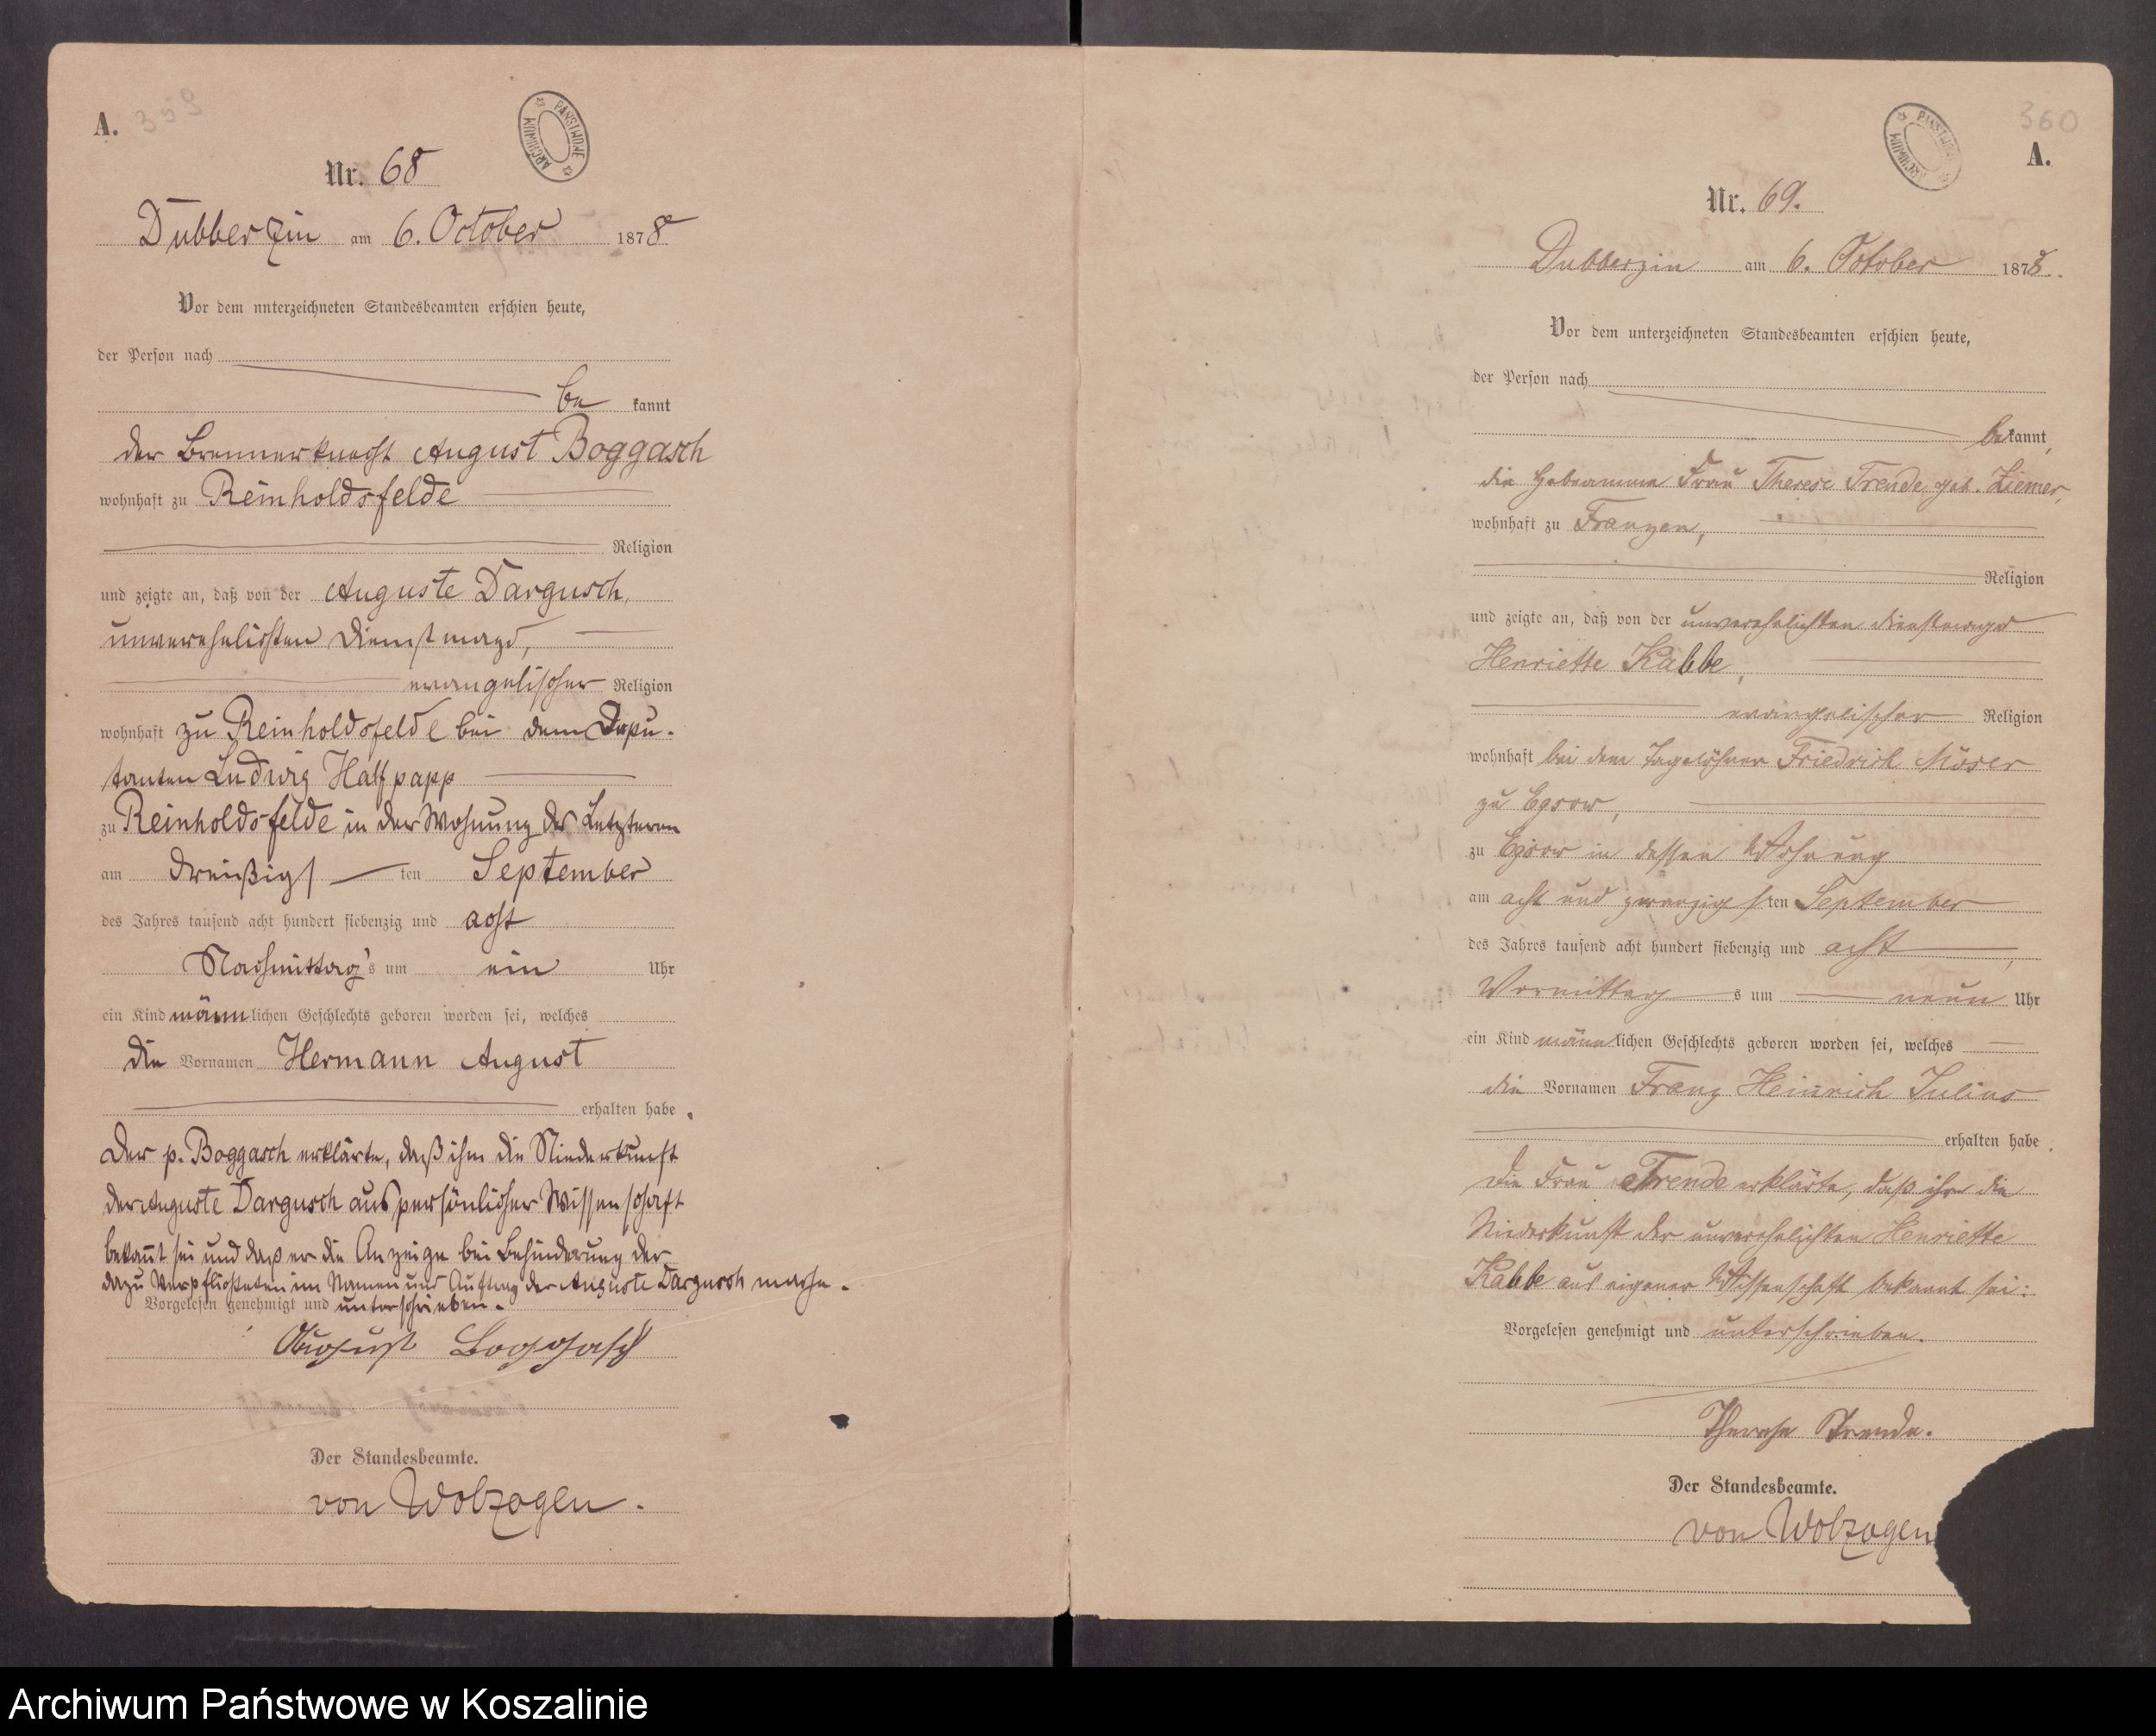 A. 359
PAŃSTWOWE ARCHIWUM
Nr. 68
Dubberzin am 6. October 1878
Vor dem unterzeichneten Standesbeamten erschien heute,
der Person nach
be kannt
der Brennerknecht August Boggasch
wohnhaft zu Reinholdsfelde
Religion
und zeigte an, daß von der Auguste Dargusch,
unverehelichten Dienstmagd,
evangelischer Religion
wohnhaft zu Reinholdsfelde bei dem Depu-
tanten Ludwig Halfpapp
zu Reinholdsfelde in der Wohnung des Letzteren
am dreißigs ten September
des Jahres tausend acht hundert siebenzig und acht
Nachmittag's um ein Uhr
ein Kind männlichen Geschlechts geboren worden sei, welches
die Vornamen Hermann August
erhalten habe.
Der p. Boggasch erklärte, daß ihm die Niederkunft
der Auguste Dargusch aus persönlicher Wissenschaft
bekannt sei und daß er die Anzeige bei Behinderung der
dazu Verpflichteten im Namen und Auftrag der Auguste Dargusch mache.
Vorgelesen genehmigt und unterschrieben.
August Boggasch
Der Standesbeamte.
von Wolzogen.
360
PAŃSTWOWE ARCHIWUM
A.
Nr. 69.
Dubberzin am 6. October 1878.
Vor dem unterzeichneten Standesbeamten erschien heute,
der Person nach
bekannt,
die Hebeamme Frau Therese Trende geb. Ziemer,
wohnhaft zu Franzen,
Religion
und zeigte an, daß von der unverehelichten Dienstmagd
Henriette Kabbe,
evangelischer Religion
wohnhaft bei dem Tagelöhner Friedrich Möser
zu Egsow,
zu Egsow in dessen Wohnung
am acht und zwanzigsten September
des Jahres tausend acht hundert siebenzig und acht,
Vormittag s um neun Uhr
ein Kind männlichen Geschlechts geboren worden sei, welches
die Vornamen Franz Heinrich Julius
erhalten habe.
Die Frau Trende erklärte, daß ihr die
Niederkunft der unverehelichten Henriette
Kabbe aus eigener Wissenschaft bekannt sei.
Vorgelesen genehmigt und unterschrieben.
Therese Trende.
Der Standesbeamte.
von Wolzogen
Archiwum Państwowe w Koszalinie